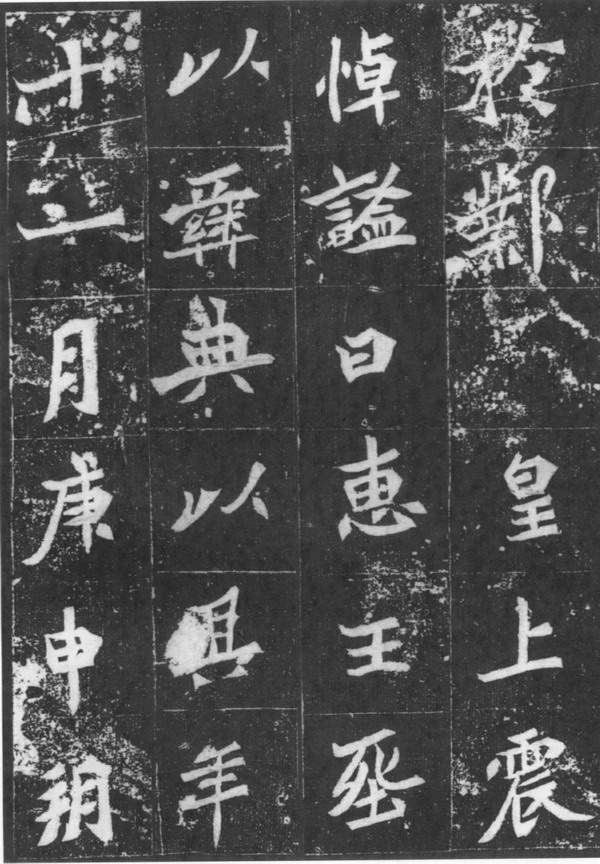 於鄴 皇上震
悼諡曰惠王葬
以彝典以其年
十一月庚申朔